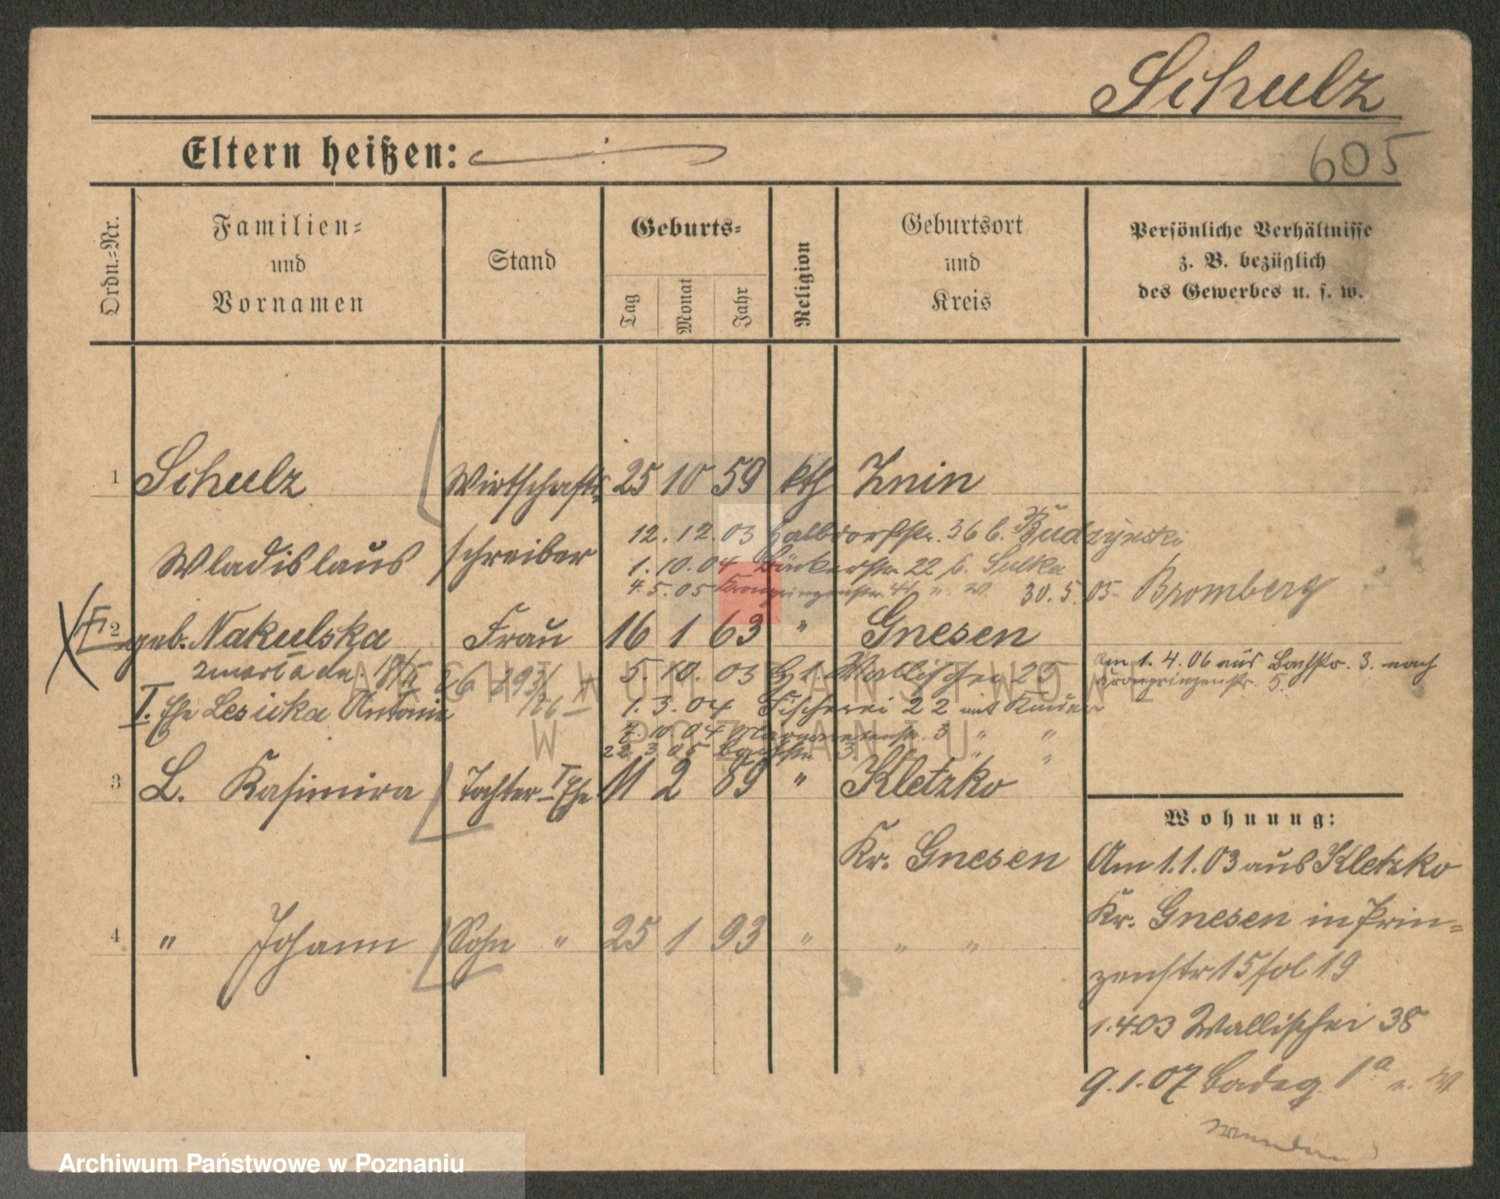 Schulz
605
Eltern heißen:
Ordn.-Nr.
Familien-
und
Vornamen
Stand
Geburts-
Tag
Monat
Jahr
Religion
Geburtsort
und
Kreis
Persönliche Verhältnisse
z. B. bezüglich
des Gewerbes u. s. w.
1 Schulz Wirtschafts 25 10 59 kth Znin
Wladislaus schreiber
12.12.03 Halbdorfstr. 36 b. Budzynski
1.10.04 Bäckerstr. 22 b. Sulka
4.5.05 Kronprinzenstr.
30.5.05 Bromberg
2 geb. Nakulska Frau 16 1 63 " Gnesen
zmarła
5.10.03 Wallischei 25
Am 1.4.06 aus Bachstr. 3. nach
Kronprinzenstr. 5.
I. Ehe Lesicka Antonie
1.3.04 Fischerei 22 mit Kinder
22.3.05 Bachstr. 3
3 L. Kasimira Tochter I Ehe 11 2 89 " Kletzko
Kr. Gnesen
4 " Johann Sohn " 25 1 93 " " "
Wohnung:
Am 1.1.03 aus Kletzko
Kr. Gnesen in Prin-
zenstr 15 sol 19
1.4.03 Wallischei 38
9.1.07 Badeg. 1a
ARCHIWUM PAŃSTWOWE
W POZNANIU
Archiwum Państwowe w Poznaniu